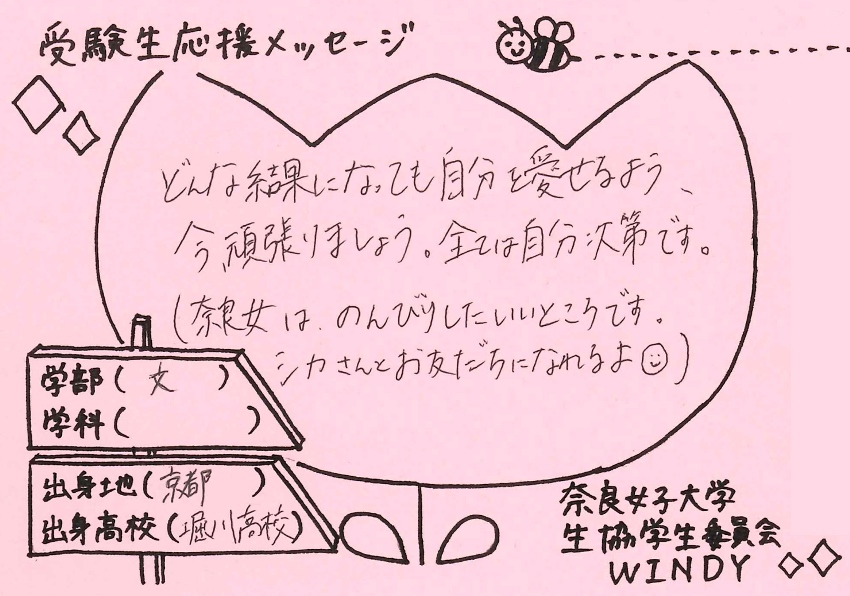 受験生応援メッセージ
どんな結果になっても自分を愛せるよう、
今、頑張りましょう。全ては自分次第です。
(奈良女は、のんびりしたいいところです。
シカさんとお友だちになれるよ)
学部(文)
学科( )
出身地(京都)
出身高校(堀川高校)
奈良女子大学
生協学生委員会
WINDY